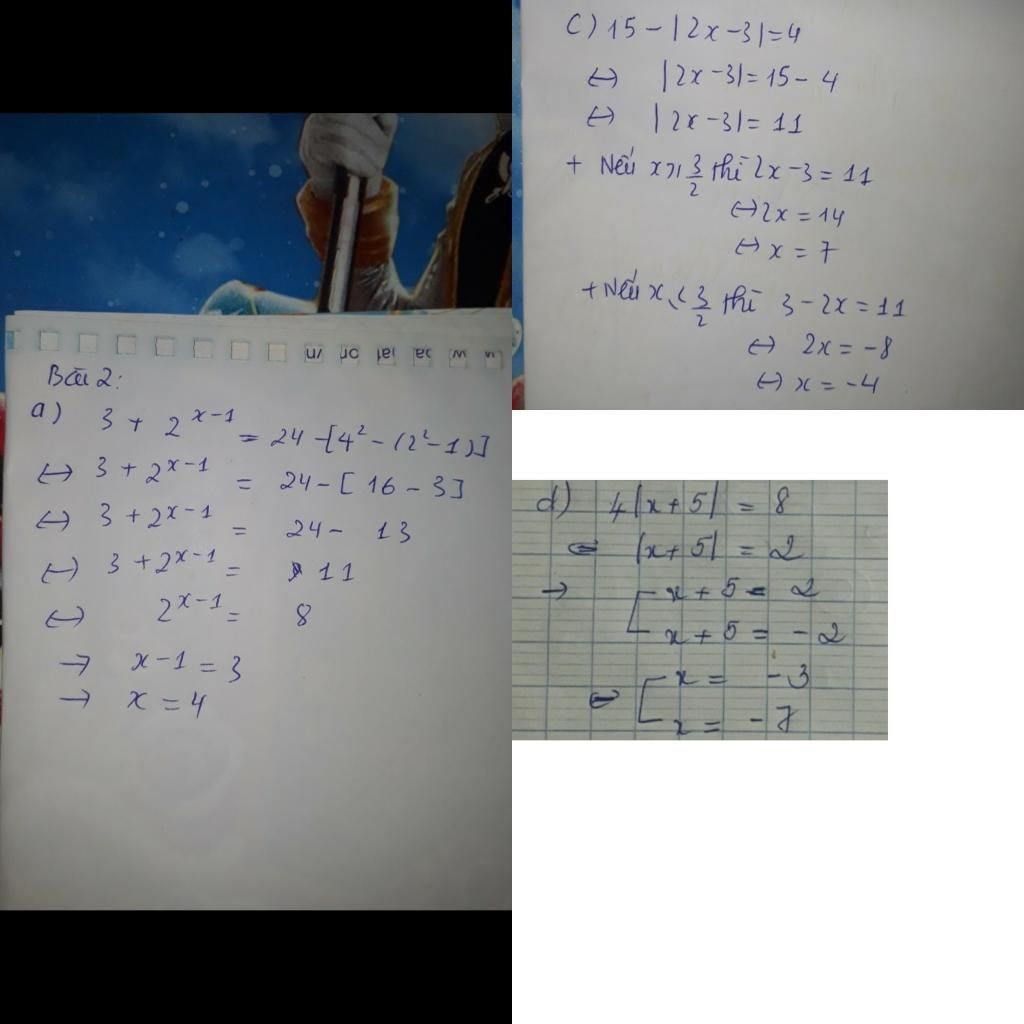 Bài 2:
a) 3 + 2^{x-1} = 24 - [4² - (2² - 1)]
↔ 3 + 2^{x-1} = 24 - [16 - 3]
↔ 3 + 2^{x-1} = 24 - 13
↔ 3 + 2^{x-1} = 11
↔ 2^{x-1} = 8
→ x - 1 = 3
→ x = 4
C) 15 - |2x - 3| = 4
↔ |2x - 3| = 15 - 4
↔ |2x - 3| = 11
+ Nếu x ≥ 3/2 thì 2x - 3 = 11
↔ 2x = 14
↔ x = 7
+ Nếu x < 3/2 thì 3 - 2x = 11
↔ 2x = -8
↔ x = -4
d) 4|x + 5| = 8
⇔ |x + 5| = 2
→ [ x + 5 = 2
x + 5 = -2
⇔ [ x = -3
x = -7